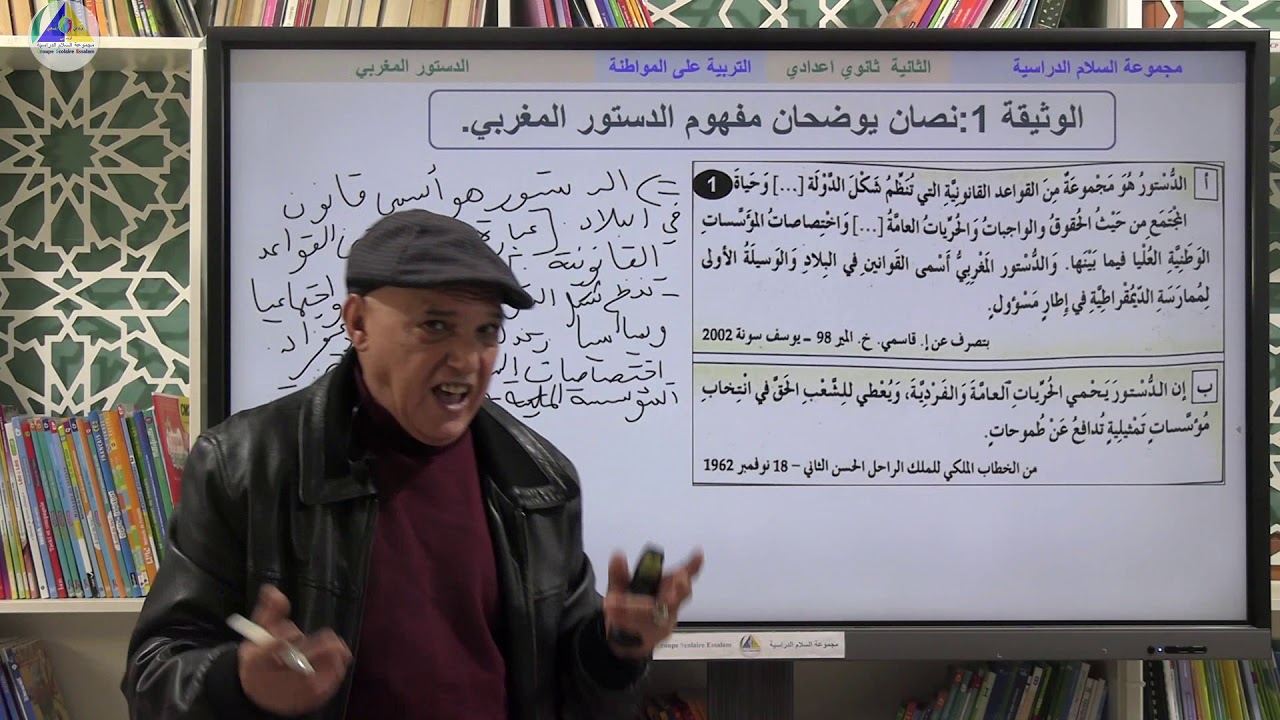 مجموعة السلام الدراسية
Groupe Scolaire Essalam
مجموعة السلام الدراسية الثانية ثانوي اعدادي التربية على المواطنة الدستور المغربي
الوثيقة 1:نصان يوضحان مفهوم الدستور المغربي.
أ الدُّستورُ هُوَ مَجْموعَةٌ مِنَ القَواعد القانونِيَّةِ التي تُنَظِّمُ شَكْلَ الدَّوْلَة [...] وَحَياةَ 1
المُجْتَمَعِ مِن حَيْثُ الحُقوقُ والواجِباتُ وَالحُرِّيات العامَّةُ [...] وَاخْتِصاصات المُؤَسَّساتِ
الوَطَنِيَّةِ العُلْيا فيما بَيْنَها. وَالدُّستور المَغْرِبِيُّ أَسْمى القَوانين في البِلادِ وَالوَسيلَةُ الأولى
لِمُمارَسَةِ الدّيمُقْراطِيَّةِ في إطارٍ مَسْؤول.
بتصرف عن إ. قاسمي. خ. المير 98 ـ يوسف سونة 2002
ب إن الدُّستورَ يَحْمي الحُرِّياتِ العامَّةَ وَالفَرْدِيَّةَ، وَيُعْطي لِلشَّعْبِ الحَقَّ في انْتِخابِ
مُؤَسَّساتٍ تَمْثيلِيةٍ تُدافِعُ عَنْ طُموحاتِ.
من الخطاب الملكي للملك الراحل الحسن الثاني – 18 نوفمبر 1962
الدستور هو أسمى قانون
في البلاد. عبارة القواعد
القانونية
- تنظم شكل واجتماعيا
وسياسيا
اختصاصات
المؤسسة
Groupe Scolaire Essalam مجموعة السلام الدراسية